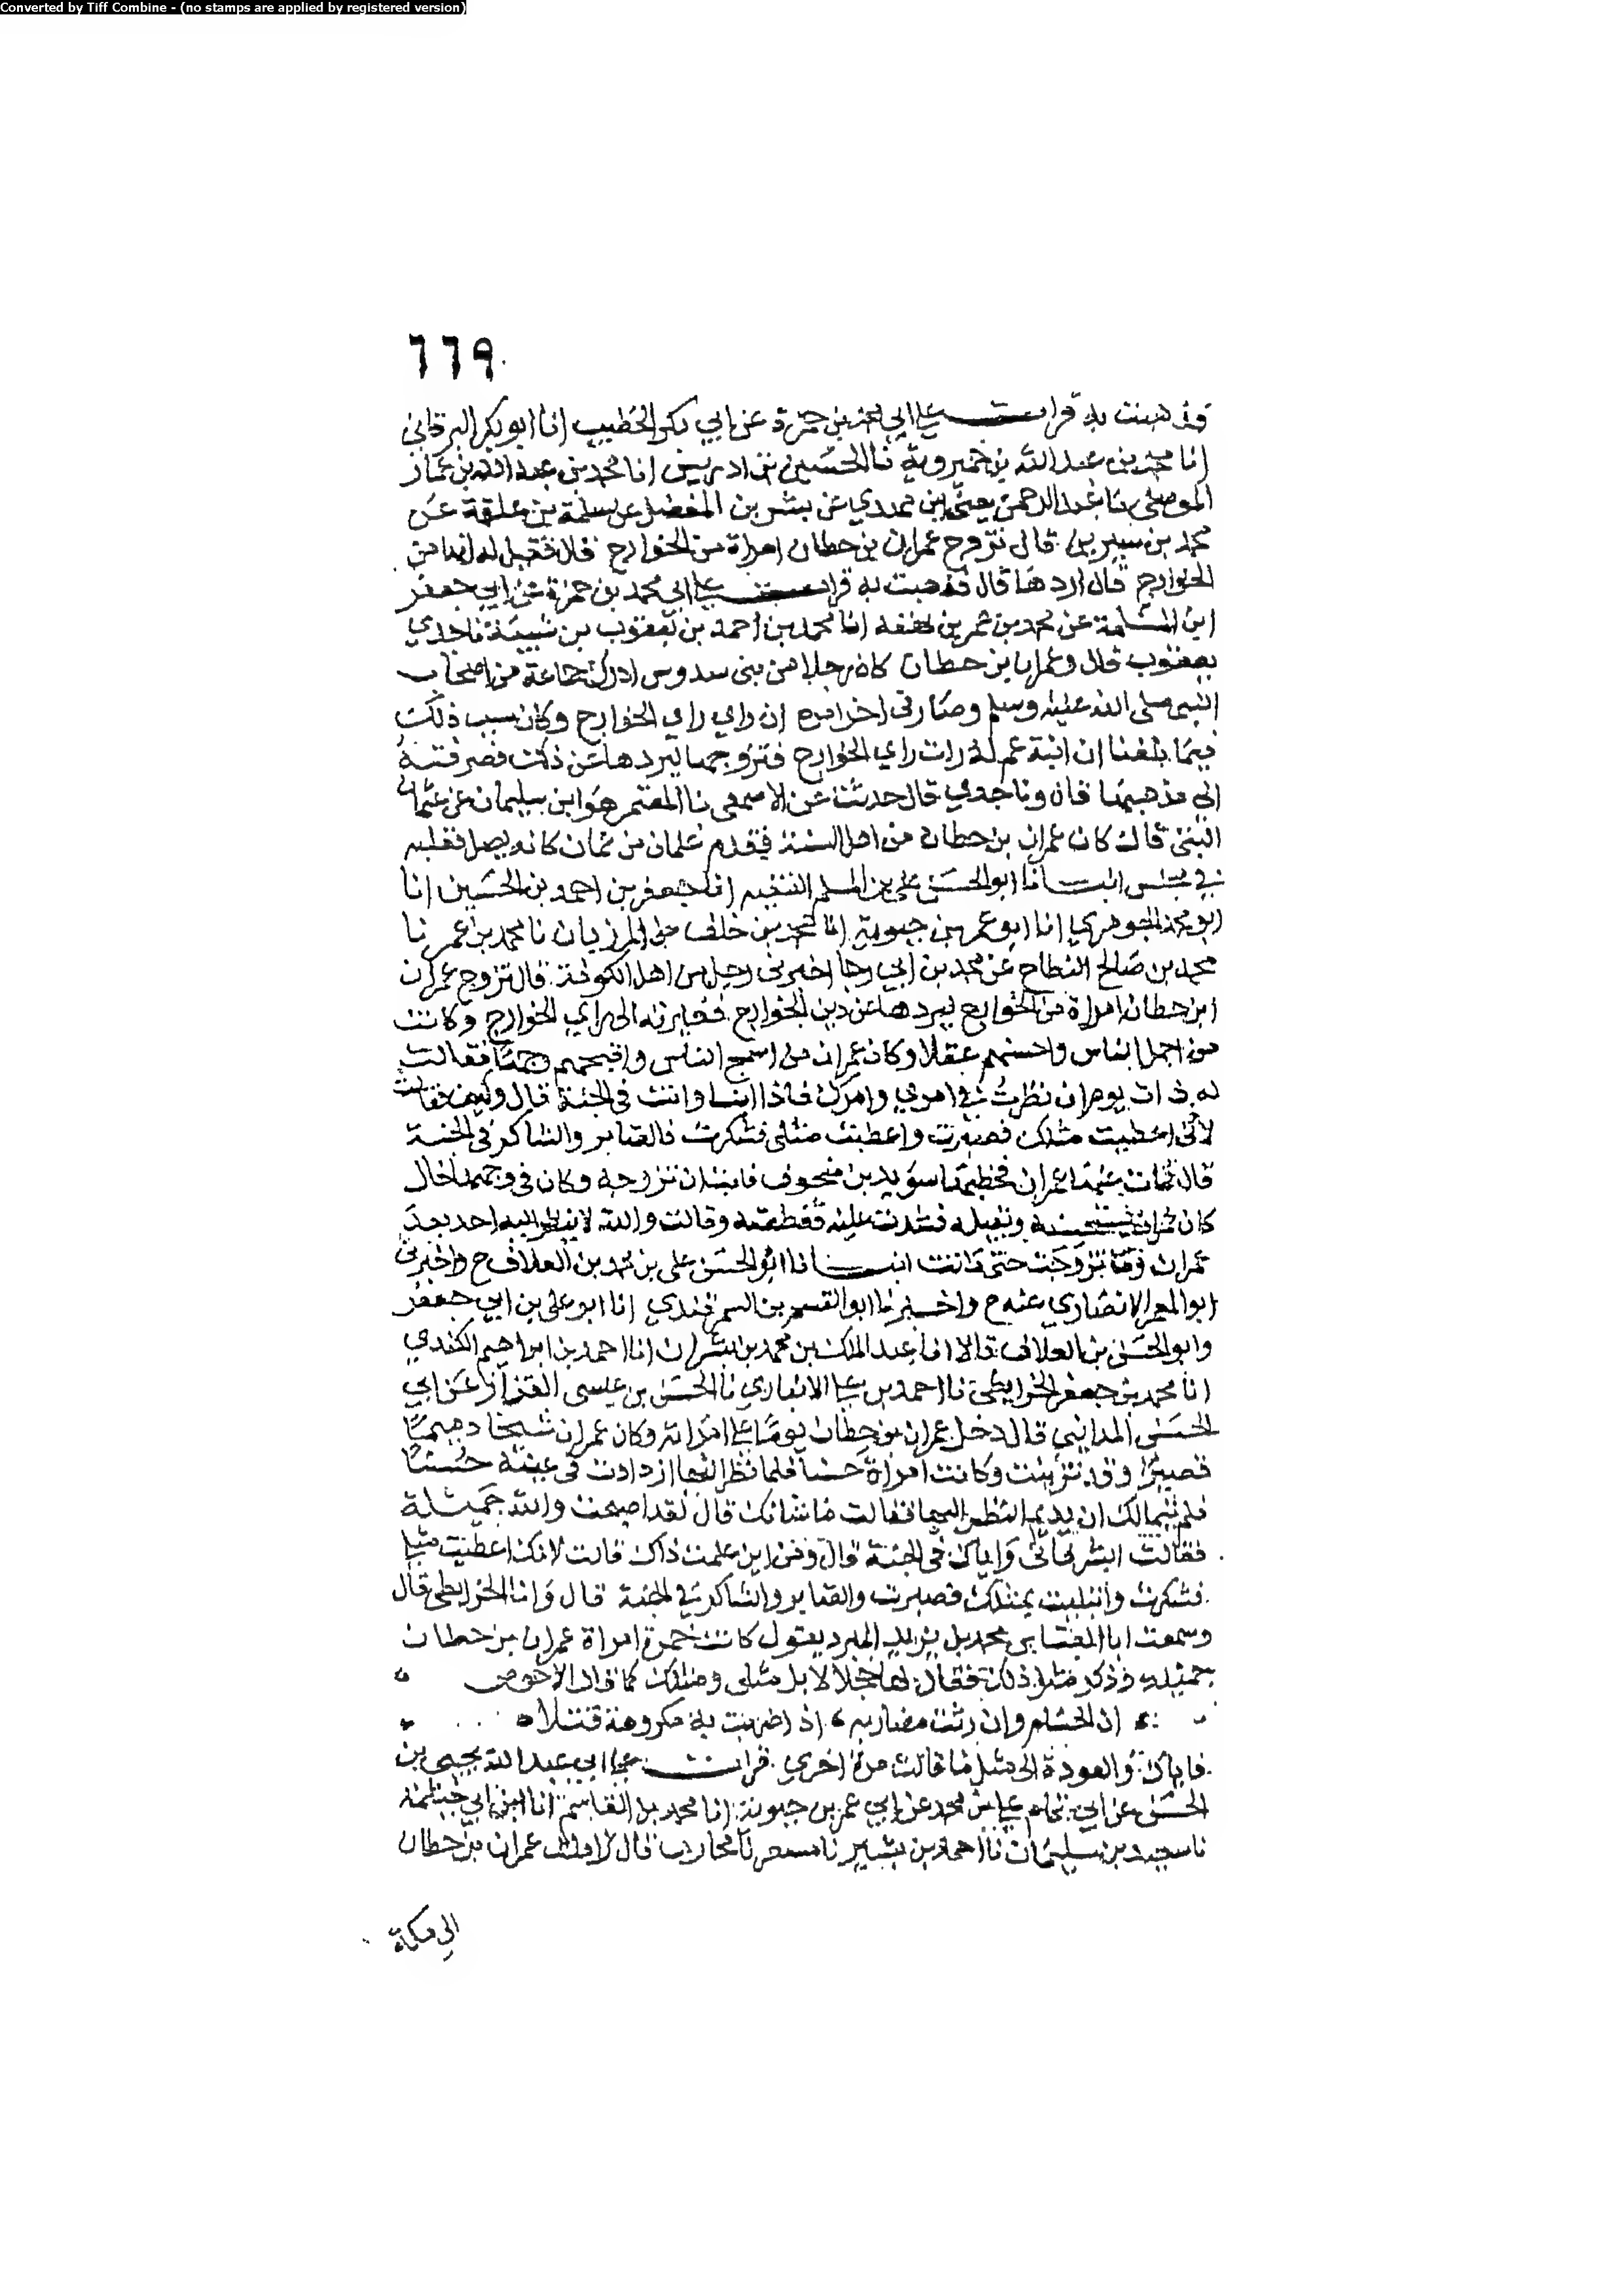 Converted by Tiff Combine - (no stamps are applied by registered version)
٦٦٩
فذهبت به قرات على ابي محمد بن حمزة عن ابي بكر الخطيب انا ابو بكر البرقاني
انا محمد بن عبد الله بن خميروية نا الحسين بن ادريس انا محمد بن عبد الله بن عمار
الموصلي نا عبد الرحمن يعني ابن مهدي عن بشر بن المفضل عن سلمة بن علقمة عن
محمد بن سيرين قال تزوج عمران بن حطان امراة من الخوارج فقيل له انها من
الخوارج قال اردها قال فذهبت به قرات على ابي محمد بن حمزة عن ابي جعفر
ابن المسلمة عن محمد بن عمر بن انا محمد بن احمد بن يعقوب بن شيبة نا جدي
يعقوب قال وعمران بن حطان كان رجلا من بني سدوس ادرك جماعة من اصحاب
النبي صلى الله عليه وسلم وصار في اخر امره ان راي راي الخوارج وكان سبب ذلك
فيما بلغنا ان ابنة عم له رات راي الخوارج فتزوجها ليردها عن ذلك فصرفته
الى مذهبها قال ونا جدي قال حدثت عن الاصمعي نا المعتمر هو ابن سليمان عن عثمان
البتي قال كان عمران بن حطان من اهل السنة فقدم غلمان من عمان كانه يصل فقلبه
في مجلس انبانا ابو الحسن علي بن المسلم الفقيه انا جعفر بن احمد بن الحسين انا
ابو محمد الجوهري انا ابو عمر بن حيوية انا محمد بن خلف بن المرزبان نا محمد بن عمر نا
محمد بن صالح النطاح عن محمد بن ابي رجا اخبرني رجل من اهل الكوفة قال تزوج عمران
ابن حطان امراة من الخوارج ليردها عن دين الخوارج فغيرته الى راي الخوارج وكانت
من اجمل الناس واحسنهم عقلا وكان عمران من اسمج الناس واقبحهم وجها فقالت
له ذات يوم ان نظرت في امري وامرك فاذا انا وانت في الجنة قال وكيف فقالت
لاني اعطيت مثلك فصبرت واعطيت مثلي فشكرت فالصابر والشاكر في الجنة
قال فمات عنها عمران فخطبها سويد بن منجوف فابت ان تزوجه وكان في وجهها خال
كان عمران يستحسنه ويقبله فشدت عليه فقطعته وقالت والله لا ينظر اليه احد بعد
عمران فما تزوجت حتى ماتت انبانا ابو الحسن علي بن محمد بن العلاف ح واخبرني
ابو المعمر الانصاري عنه ح واخبرنا ابو القسم بن السمرقندي انا ابو علي بن ابي جعفر
وابو الحسن بن العلاف قالا انا عبد الملك بن محمد بن بشران انا احمد بن ابراهيم الكندي
انا محمد بن جعفر الخرايطي نا احمد بن علي الانباري نا الحسن بن عيسى القزاز عن ابي
الحسن المدايني قال دخل عمران بن حطان يوما على امراته وكان عمران شيخا دميما
قصيرا وقد تزينت وكانت امراة حسنا فلما نظر اليها ازدادت في عينه حسنا
فلم يتمالك ان يديم النظر اليها فقالت ما شانك قال لقد اصبحت والله جميلة
فقالت ابشر فاني واياك في الجنة قال ومن اين علمت ذاك قالت لانك اعطيت مثلي
فشكرت وابتليت بمثلك فصبرت والصابر والشاكر في الجنة قال وانا الخرايطي قال
وسمعت ابا العباس محمد بن يزيد المبرد يقول كانت حمرة امراة عمران بن حطان
جميلة وذكر مثل ذلك فقال لها خجلا لا بل مثلي ومثلك كما قال الاحوص
ان الحسام وان رثت مضاربه اذا ضربت به مكروهة قتلا
فاياك والعودة الى مثل ما قالت مرة اخري قرات على ابي عبد الله يحيى بن
الحسن عن ابي تمام علي بن محمد عن ابي عمر بن حيوية انا محمد بن القاسم انا ابن ابي خيثمة
نا سعيد بن سليمان نا احمد بن بشير نا مسعر نا محارب قال زاملت عمران بن حطان
الى مكة